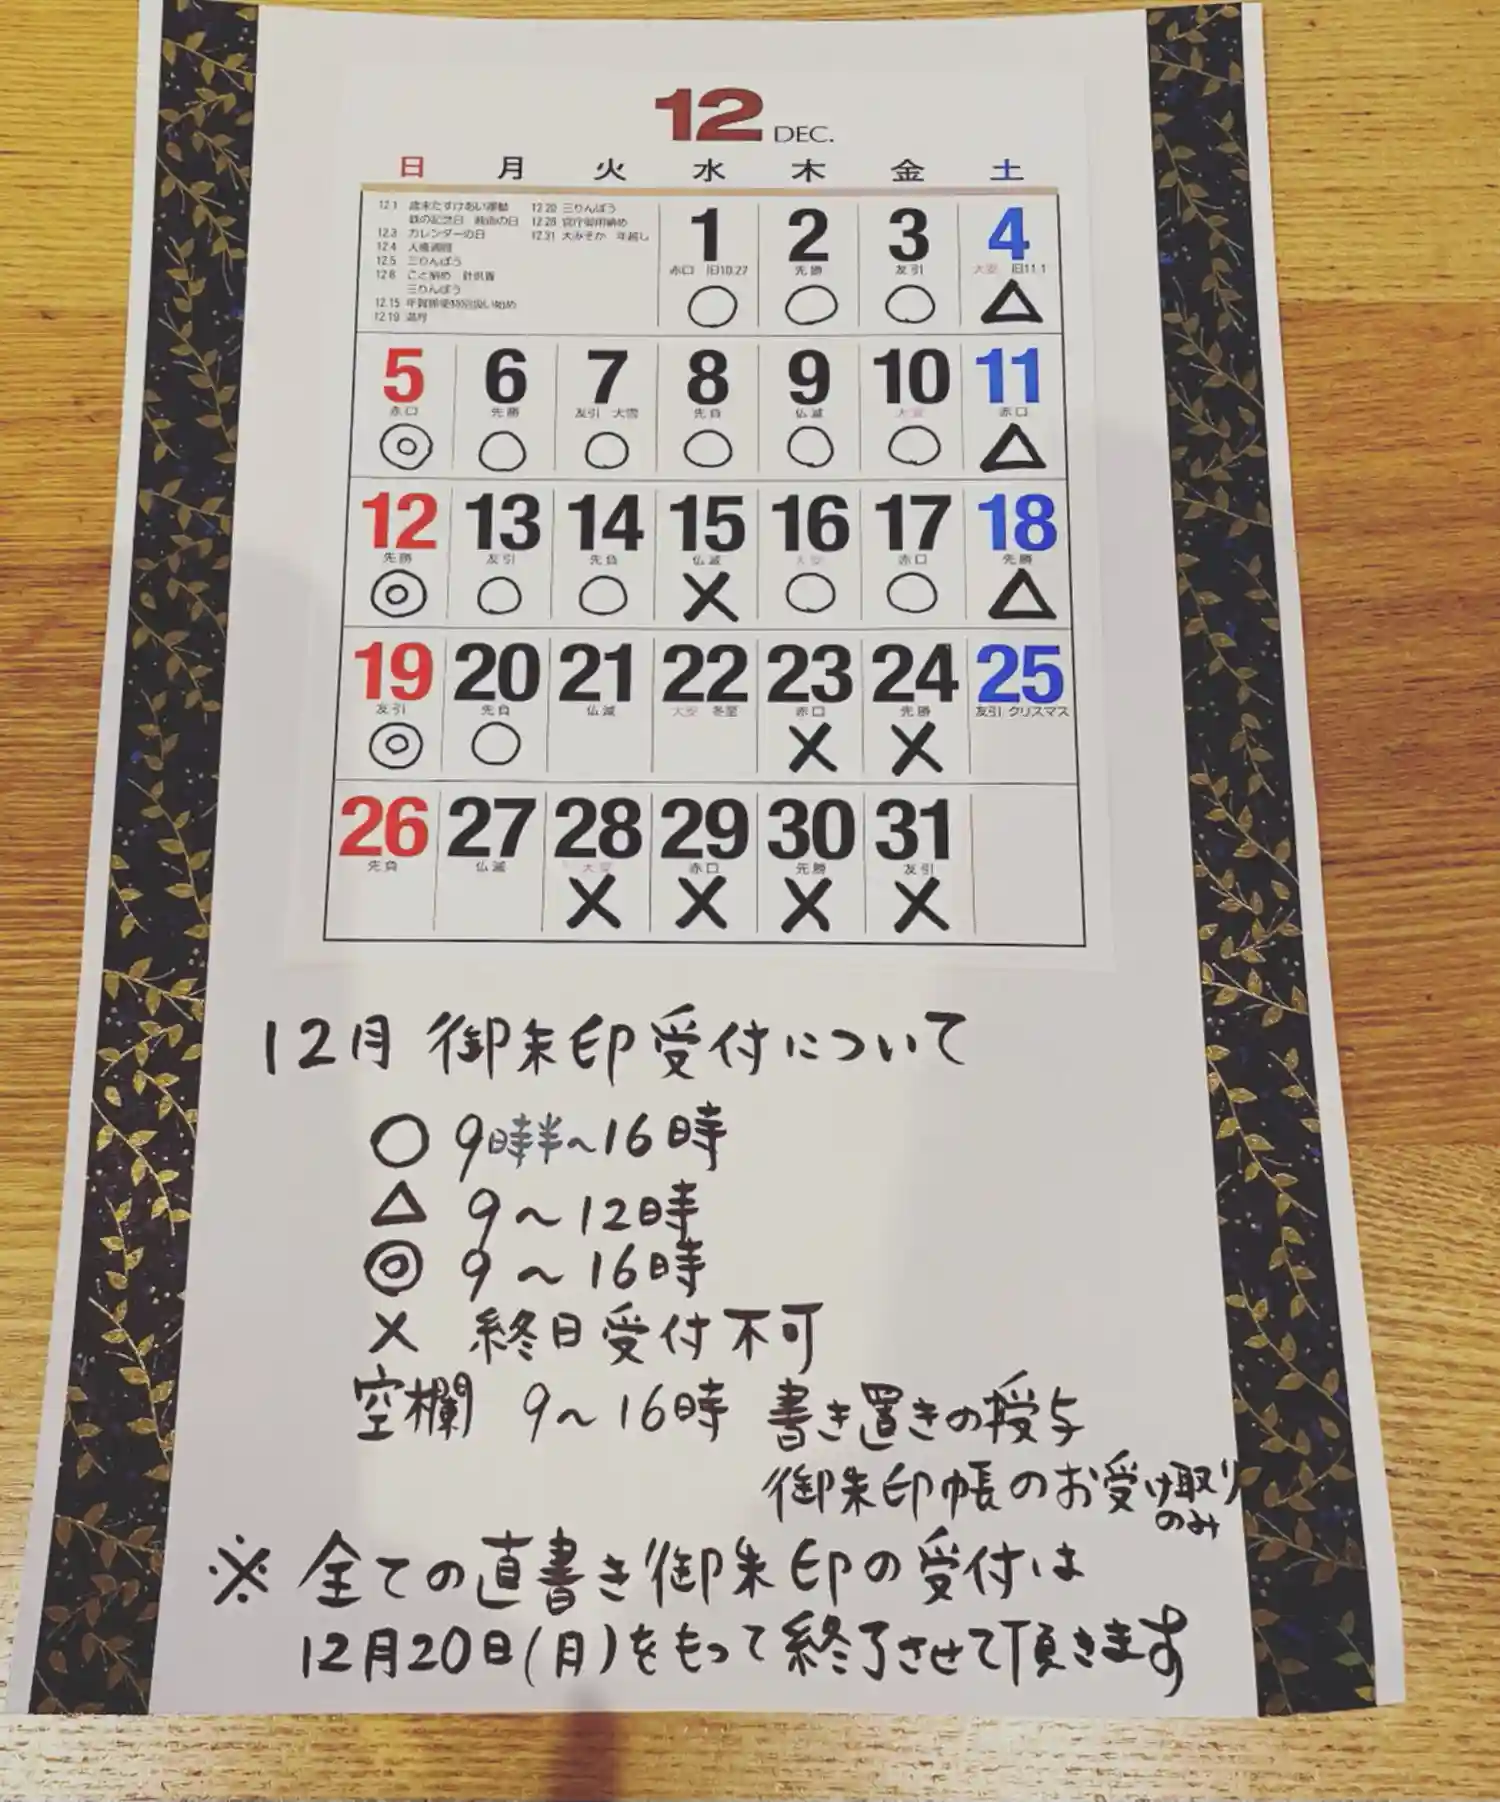 12 DEC.
日 月 火 水 木 金 土
12.1 歳末たすけあい運動
鉄の記念日 映画の日
12.3 カレンダーの日
12.4 人権週間
12.5 三りんぼう
12.8 こと納め 針供養
三りんぼう
12.15 年賀郵便特別扱い始め
12.19
12.20 三りんぼう
12.28 官庁御用納め
12.31 大みそか 年越し
1 2 3 4
赤口 旧10.27 先勝 友引 大安 旧11.1
○ ○ ○ △
5 6 7 8 9 10 11
赤口 先勝 友引 大雪 先負 仏滅 大安 赤口
◎ ○ ○ ○ ○ ○ △
12 13 14 15 16 17 18
先勝 友引 先負 仏滅 大安 赤口 先勝
◎ ○ ○ × ○ ○ △
19 20 21 22 23 24 25
友引 先負 仏滅 大安 冬至 赤口 先勝 友引 クリスマス
◎ ○ × ×
26 27 28 29 30 31
先負 仏滅 大安 赤口 先勝 友引
× × × ×
12月 御朱印受付について
○ 9時半~16時
△ 9~12時
◎ 9~16時
× 終日受付不可
空欄 9~16時 書き置きの授与
御朱印帳のお受け取り
のみ
※ 全ての直書き御朱印の受付は
12月20日(月)をもって終了させて頂きます